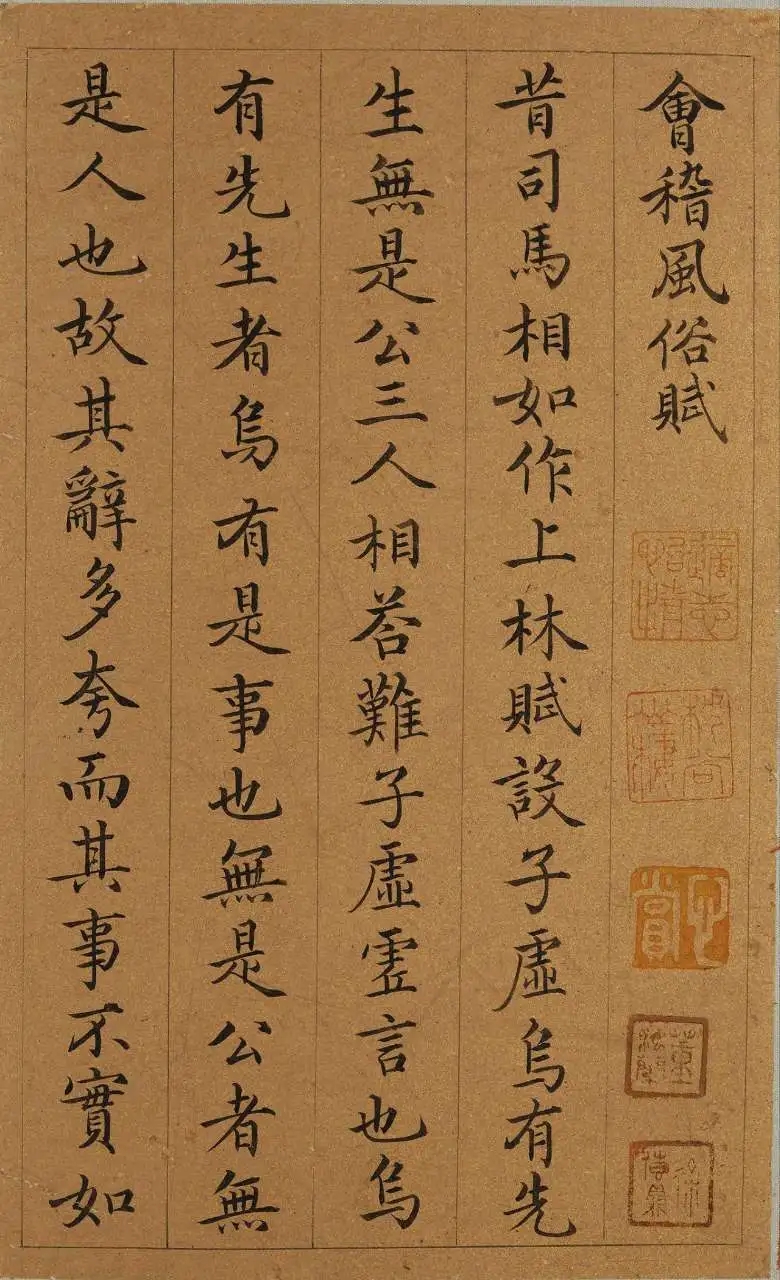 會稽風俗賦
昔司馬相如作上林賦設子虛烏有先
生無是公三人相荅難子虛虛言也烏
有先生者烏有是事也無是公者無
是人也故其辭多夸而其事不實如